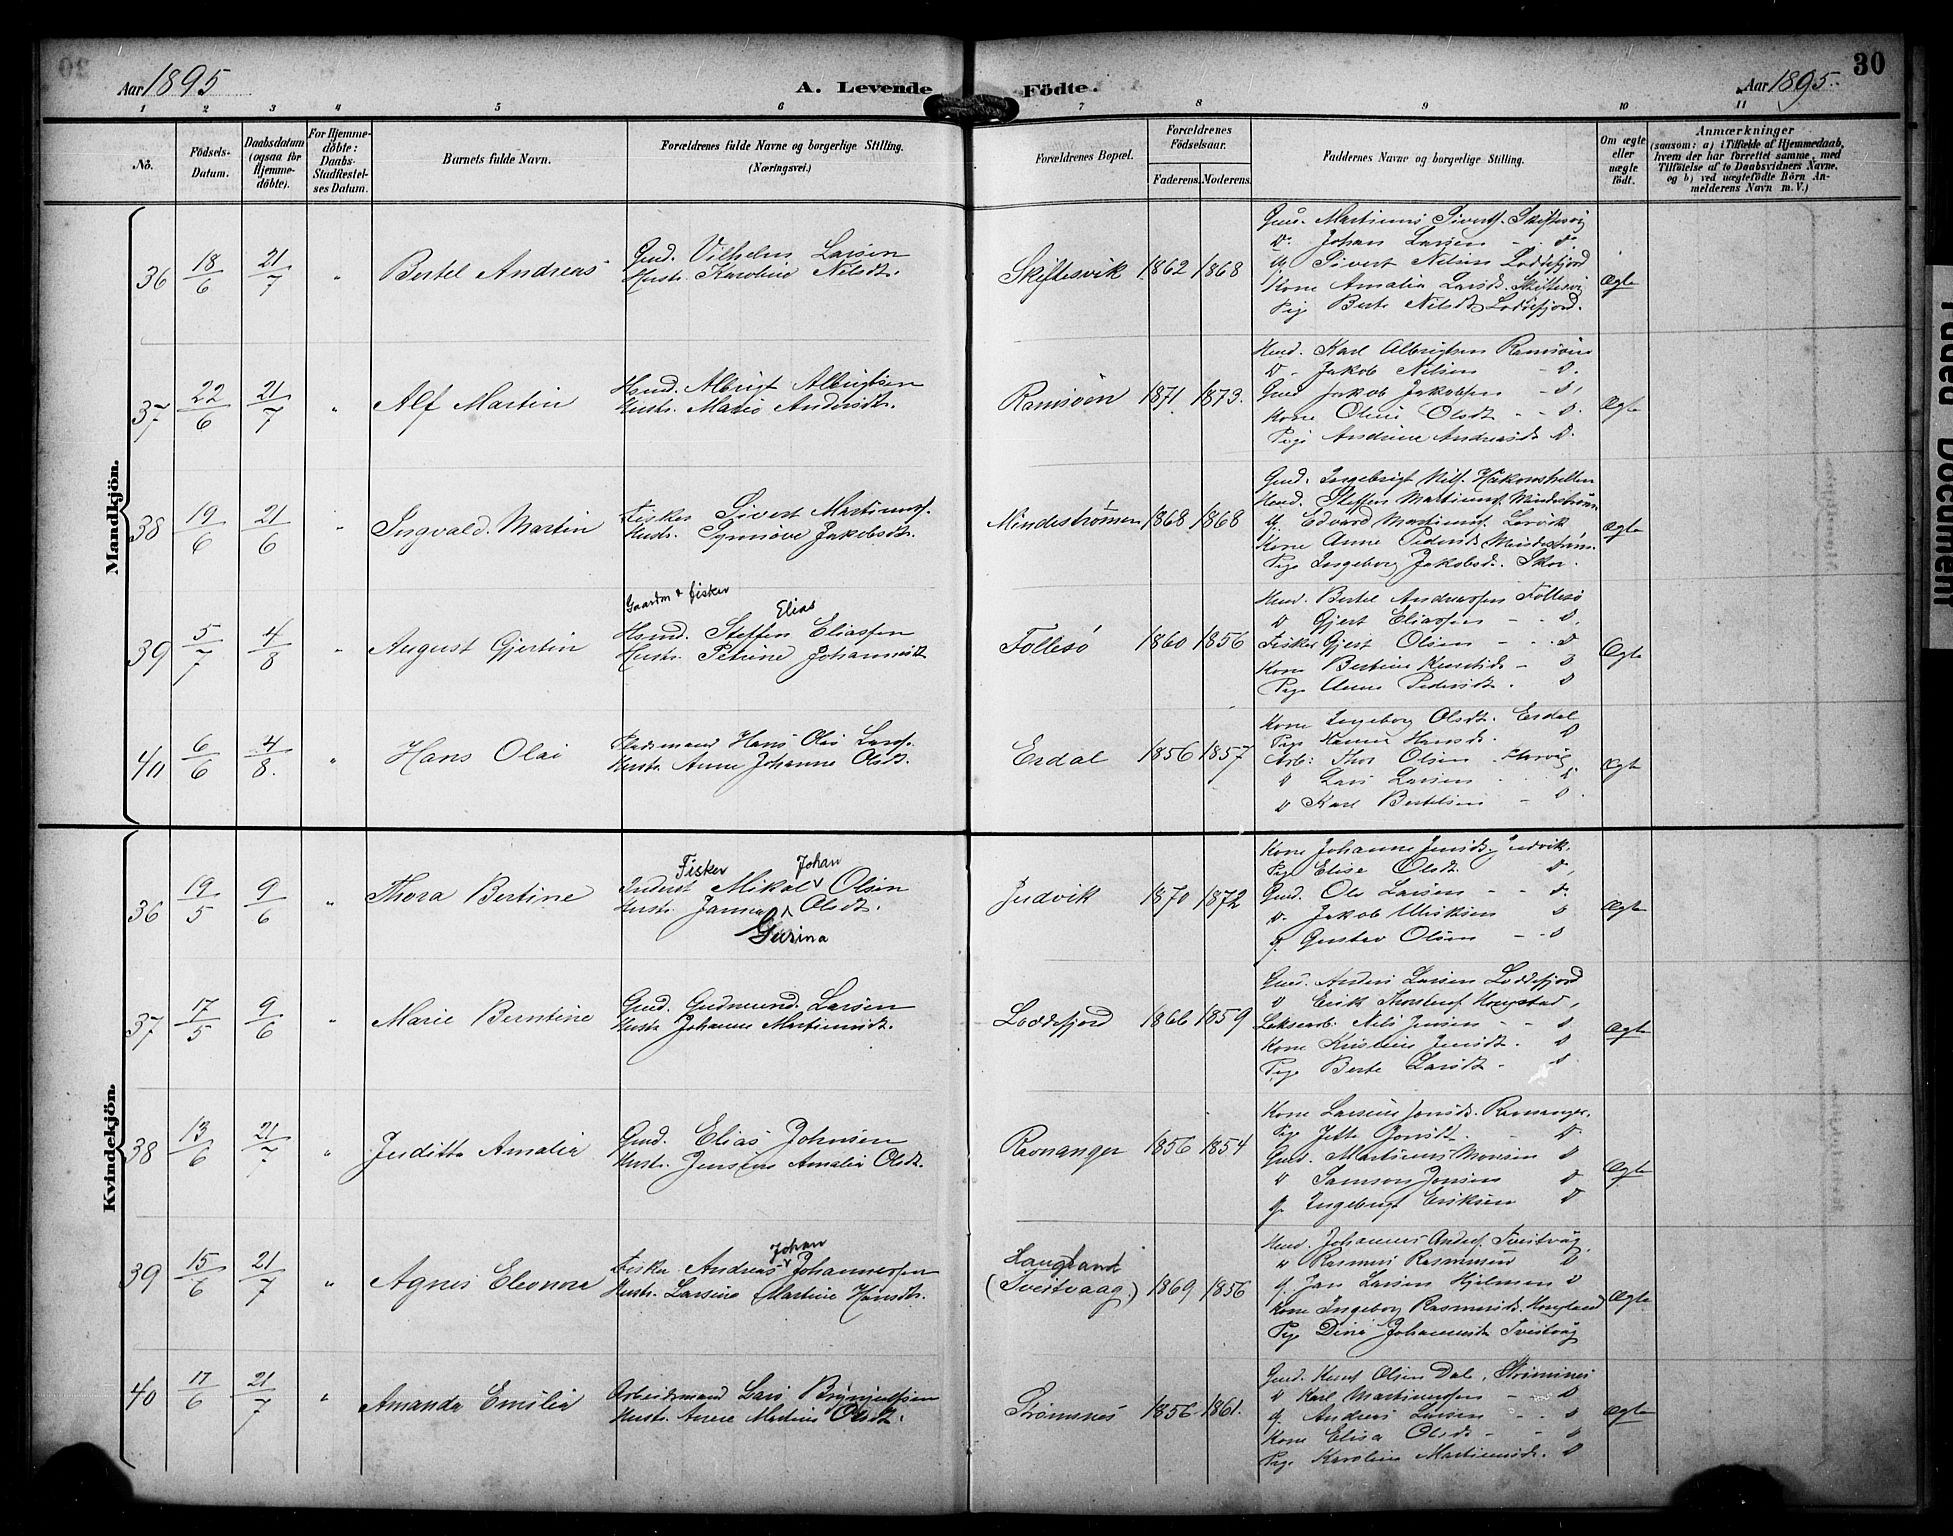 Aar 1895
A. Levende
Födte.
Aar 1895.
30
1 2 3 4 5 6 7 8 9 10 11
No.
Födsels-
Datum.
Daabsdatum
(ogsaa for
Hjemme-
döbte).
For Hjemme-
döbte:
Daabs-
Stadfæstel-
ses Datum.
Barnets fulde Navn.
Forældrenes fulde Navne og borgerlige Stilling.
(Næringsvei.)
Forældrenes Bopæl.
Forældrenes
Födselsaar.
Faderens. Moderens.
Faddernes Navne og borgerlige Stilling.
Om ægte
eller
uægte
födt.
Anmærkninger
(saasom: a) i Tilfælde af Hjemmedaab,
hvem der har forrettet samme, med
Tilföielse af to Daabsvidners Navne,
og b) ved uægtefödte Börn An-
melderens Navn m. V.)
Mandkjön.
36 18/6 21/7 " Bertel Andreas
Gmd. Vilhelm Larsen
Hustr. Karoline Nilsdt.
Skiftesvik 1862 1868
Gmd. Martinus Siverts. Skiftesvig
D. Johan Larsen - D.
U Sivert Nilsen Loddefjord
Kone Amalia Larsd. Skiftesvig
Pige Berte Nilsdt Loddefjord.
Ægte
37 22/6 21/7 " Alf Martin
Hsmd. Albrigt Albrigtsen
Hustr. Marie Andersdt.
Ramsøen 1871 1873.
Hsmd. Karl Albrigtsen Ramsøen
D - Jakob Nilsen - D.
Gmd Jakob Jakobsen - D.
Kone Oline Olsdt - D.
Pige Andrine Andreasd. D.
Ægte
38 19/6 21/6 " Ingvald Martin
Fisker Sivert Martinuss.
Hustr. Synnøve Jakobsdt.
Mindestrømmen 1868 1868
Gmd. Ingebrigt Nils. Hakonshellen
Hsmd. Steffen Martinuss. Mindestrøm
U. Edvard Martinuss. Lervik
Kone Anne Pedersd. Mindestrøm.
Pige Ingeborg Jakobsd. Skor.
Ægte
39 5/7 4/8 " August Gjertin
Gaardm + fisker
Elias
Hsmd. Steffen Eliassen
Hustr. Petrine Johannesdt
Follesø 1860 1856
Hsmd. Bertel Andreassen Follesø
D Gjert Eliassen - D.
Fisker Gjert Olsen - D
Kone Bertine Knutsd. - D
Pige Anne Pedersdt. D
Ægte
40 6/6 4/8. " Hans Olai
Pladsmand Hans Olai Lars.
Hustr. Anne Johanne Olsdt.
Erdal 1856 1857
Kone Ingeborg Olsdt. Erdal
Pige Hanna Hansd. D
Arb: Thor Olsen
D Lars Larsen - D.
D Karl Bertelsen - D.
Ægte
Kvindekjön.
36 19/5 9/6 " Thora Bertine
Fisker Johan
Inderst Mikal Olsen
Hustr. Janna Olsdt.
Gurina
Judvik 1870 1872
Kone Johanne Jensd. Judvik.
Pige Elise Olsdt. D.
Gmd. Ole Larsen - D.
D. Jakob Ulriksen D
U. Gustav Olsen - D
Ægte
37 17/5 9/6 " Marie Berntine
Gmd. Gudmund Larsen
Hustr Johanne Martinusdt.
Loddefjord 1866 1859
Gmd. Anders Larsen Loddefjord
D Erik Thorsens. Kongstad,
Nils Jensen - D
Kone Kristine Jensdt. D
Pige Berte Larsdt - D
Ægte
38 13/6 21/7. " Juditte Amalia
Gmd. Elias Johnsen
Hustr. Jensine Amalia Olsdt.
Ravnanger 1856 1854
Kone Larsine Jonsd. Ravnanger.
Pige Jette Jonsdt. - D.
Gmd. Martinus Monsen D
D Samson Jonsen D
U. Ingebrigt Eriksen D
Ægte
39 15/6 21/7 " Agnes Eleonora
Johan
Fisker Andreas Johannessen
Hustr. Larsine Martine Hansdt.
Haugland
(Tveitvaag) 1869 1856
Hsmd. Johannes Anders. Tveitvåg
D Rasmus Rasmussen D
U. Jan Larsen Hjelmen D
Kone Ingeborg Rasmusd. Haugland
Pige Dina Johannesdt Tveitvåg
Ægte
40 17/6 21/7 " Amanda Emilia
Arbeidsmand Lars Brynjulfsen
Hustr. Anne Martine Olsdt.
Strømsnes 1856 1861.
Gmd. Knut Olsen Dal, Strømsnes
D Karl Martinussen - D
U. Andreas Larsen - D
Kone Elisa Olsdt - D
Pige Karoline Martinusd. D
Ægte
Document